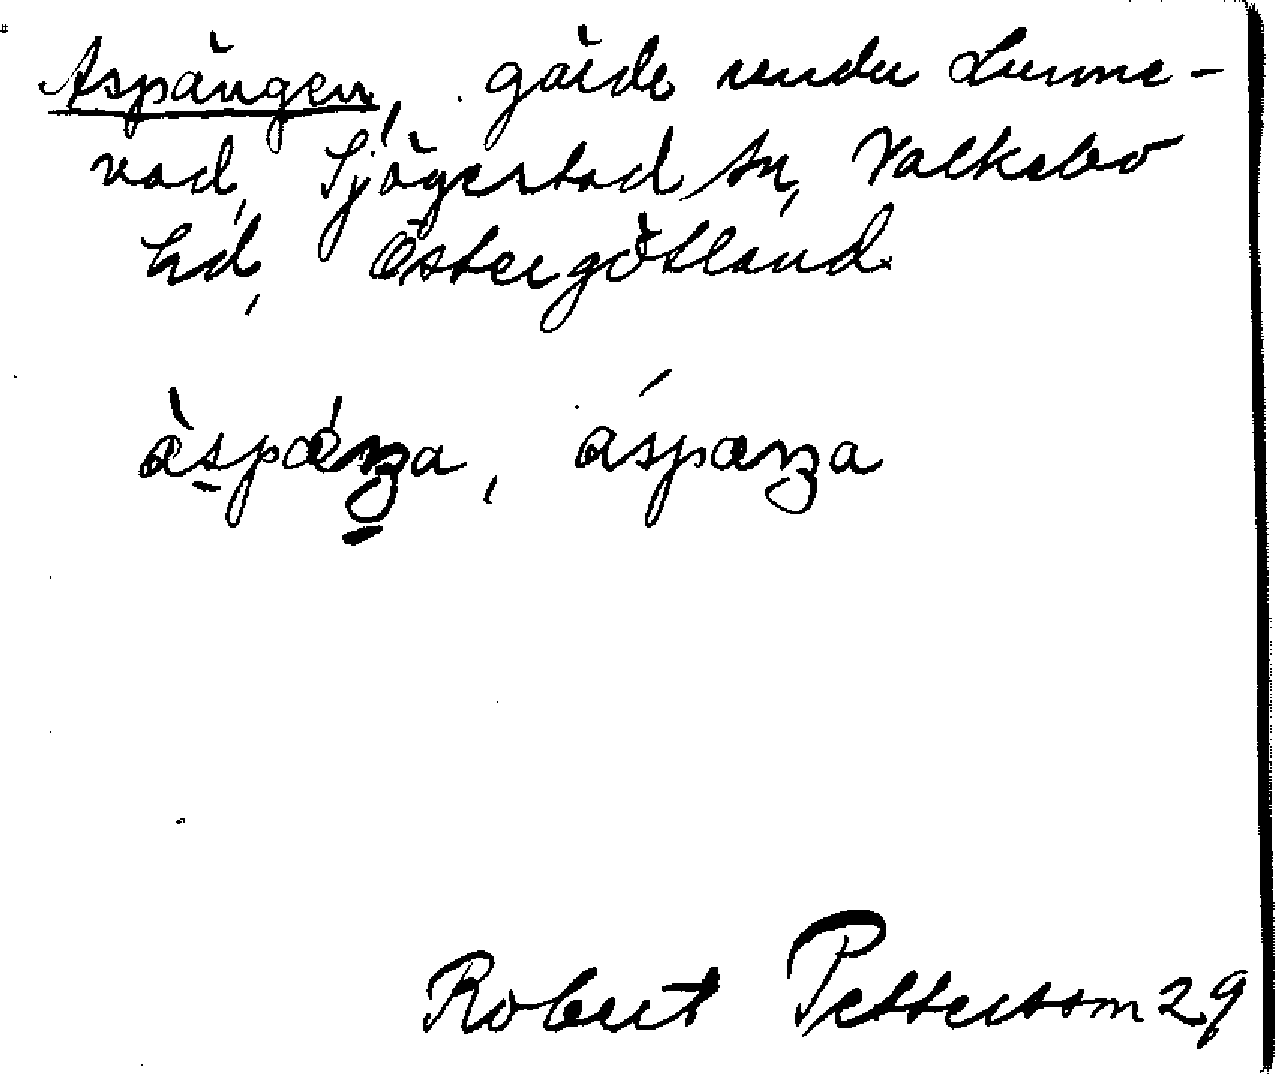 Aspängen, gärde under Lumme-
vad, Sjögestad sn, Valkebo
hd, Östergötland.
àspǽnga, áspænga
Robert Pettersson 29